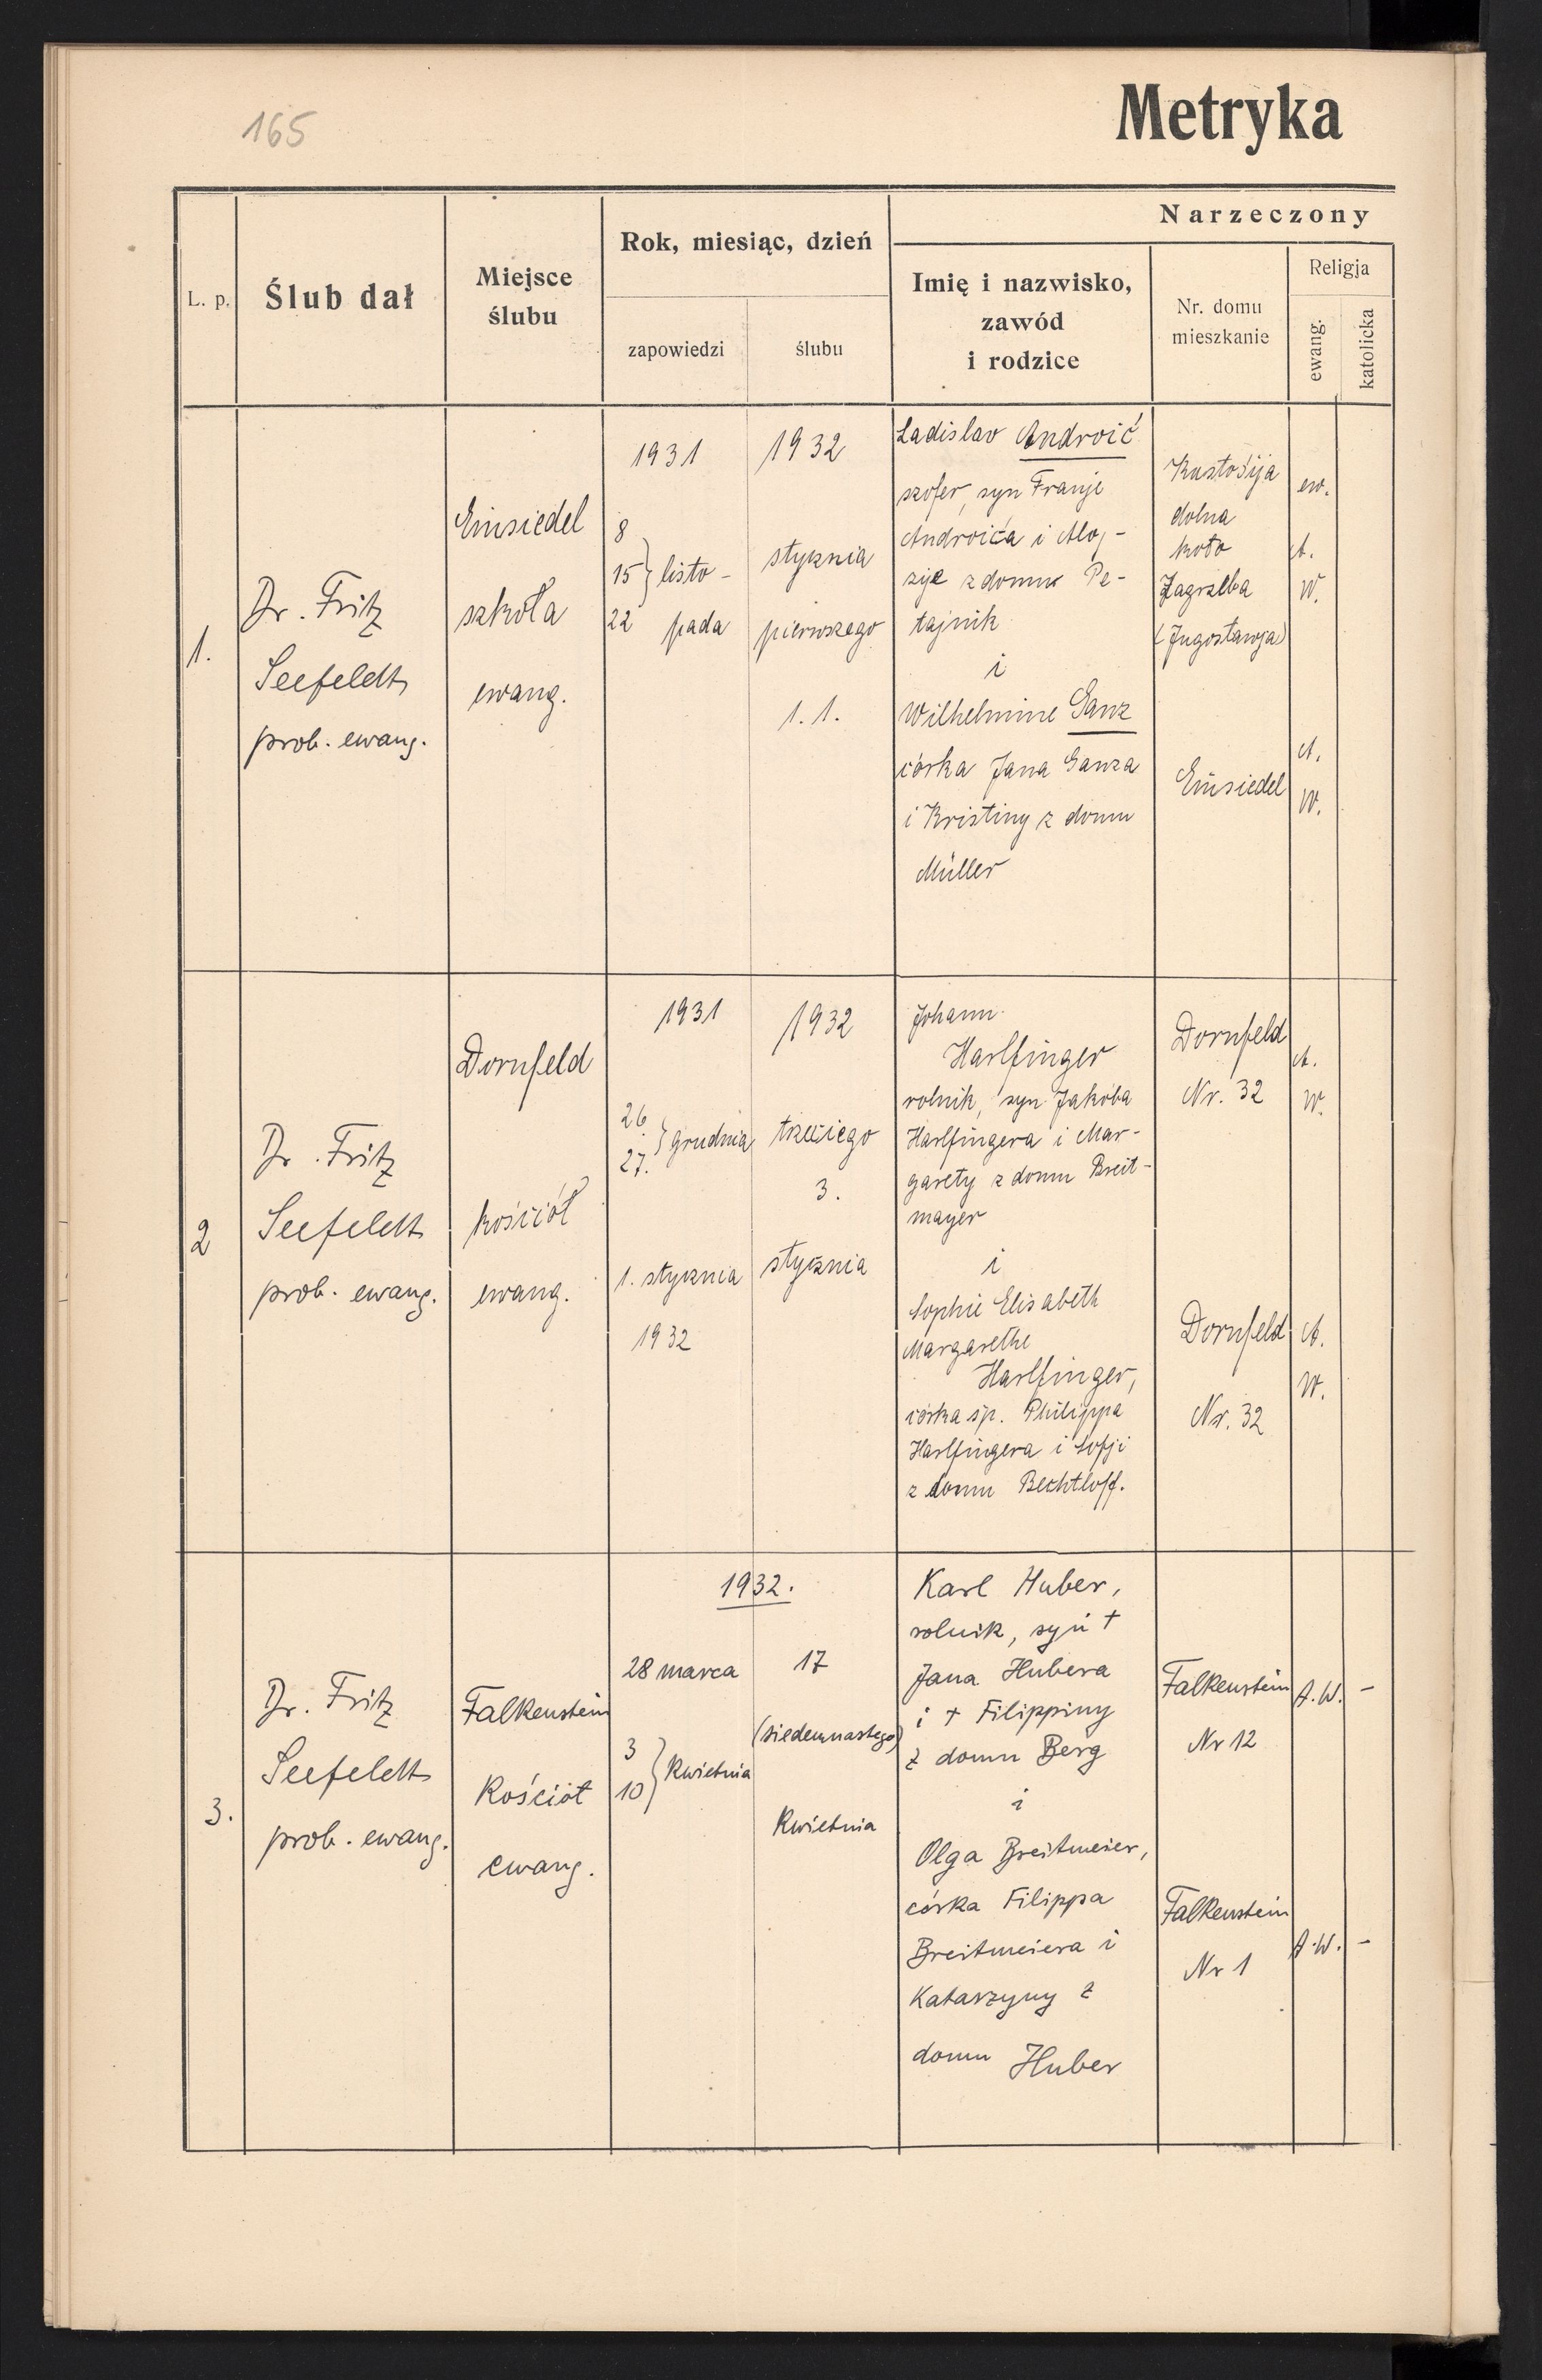 165
Metryka
L. p.
Ślub dał
Miejsce
ślubu
Rok, miesiąc, dzień
zapowiedzi
ślubu
Narzeczony
Imię i nazwisko,
zawód
i rodzice
Nr. domu
mieszkanie
Religja
ewang.
katolicka
1.
Dr. Fritz
Seefeldt
prob. ewang.
Einsiedel
szkoła
ewang.
1931
8
15 } listo-
22 pada
1932
stycznia
pierwszego
1. 1.
Ladislav Androić
szofer, syn Franje
Androića i Aloj-
zije z domu Pe-
tajnik
i
Wilhelmine Ganz
córka Jana Ganza
i Kristiny z domu
Müller
Kustošija
dolna
koło
Zagrzeba
(Jugosławja)
Einsiedel
ew.
A.
W.
A.
W.
2
Dr. Fritz
Seefeldt
prob. ewang.
Dornfeld
kościół
ewang.
1931
26.
27. } grudnia
1. stycznia
1932
1932
trzeciego
3.
stycznia
Johann
Harlfinger
rolnik, syn Jakóba
Harlfingera i Mar-
garety z domu Breit-
mayer
i
Sophie Elisabeth
Margarethe
Harlfinger,
córka śp. Philippa
Harlfingera i Sofji
z domu Bechtloff.
Dornfeld
Nr. 32
Dornfeld
Nr. 32
A.
W.
A.
W.
3.
Dr. Fritz
Seefeldt
prob. ewang.
Falkenstein
Kościół
ewang.
1932.
28 marca
3
10 } Kwietnia
17
(siedemnastego)
Kwietnia
Karl Huber,
rolnik, syn †
Jana Hubera
i † Filippiny
z domu Berg
i
Olga Breitmeier,
córka Filippa
Breitmeiera i
Katarzyny z
domu Huber
Falkenstein
Nr 12
Falkenstein
Nr 1
A.W. -
A.W. -